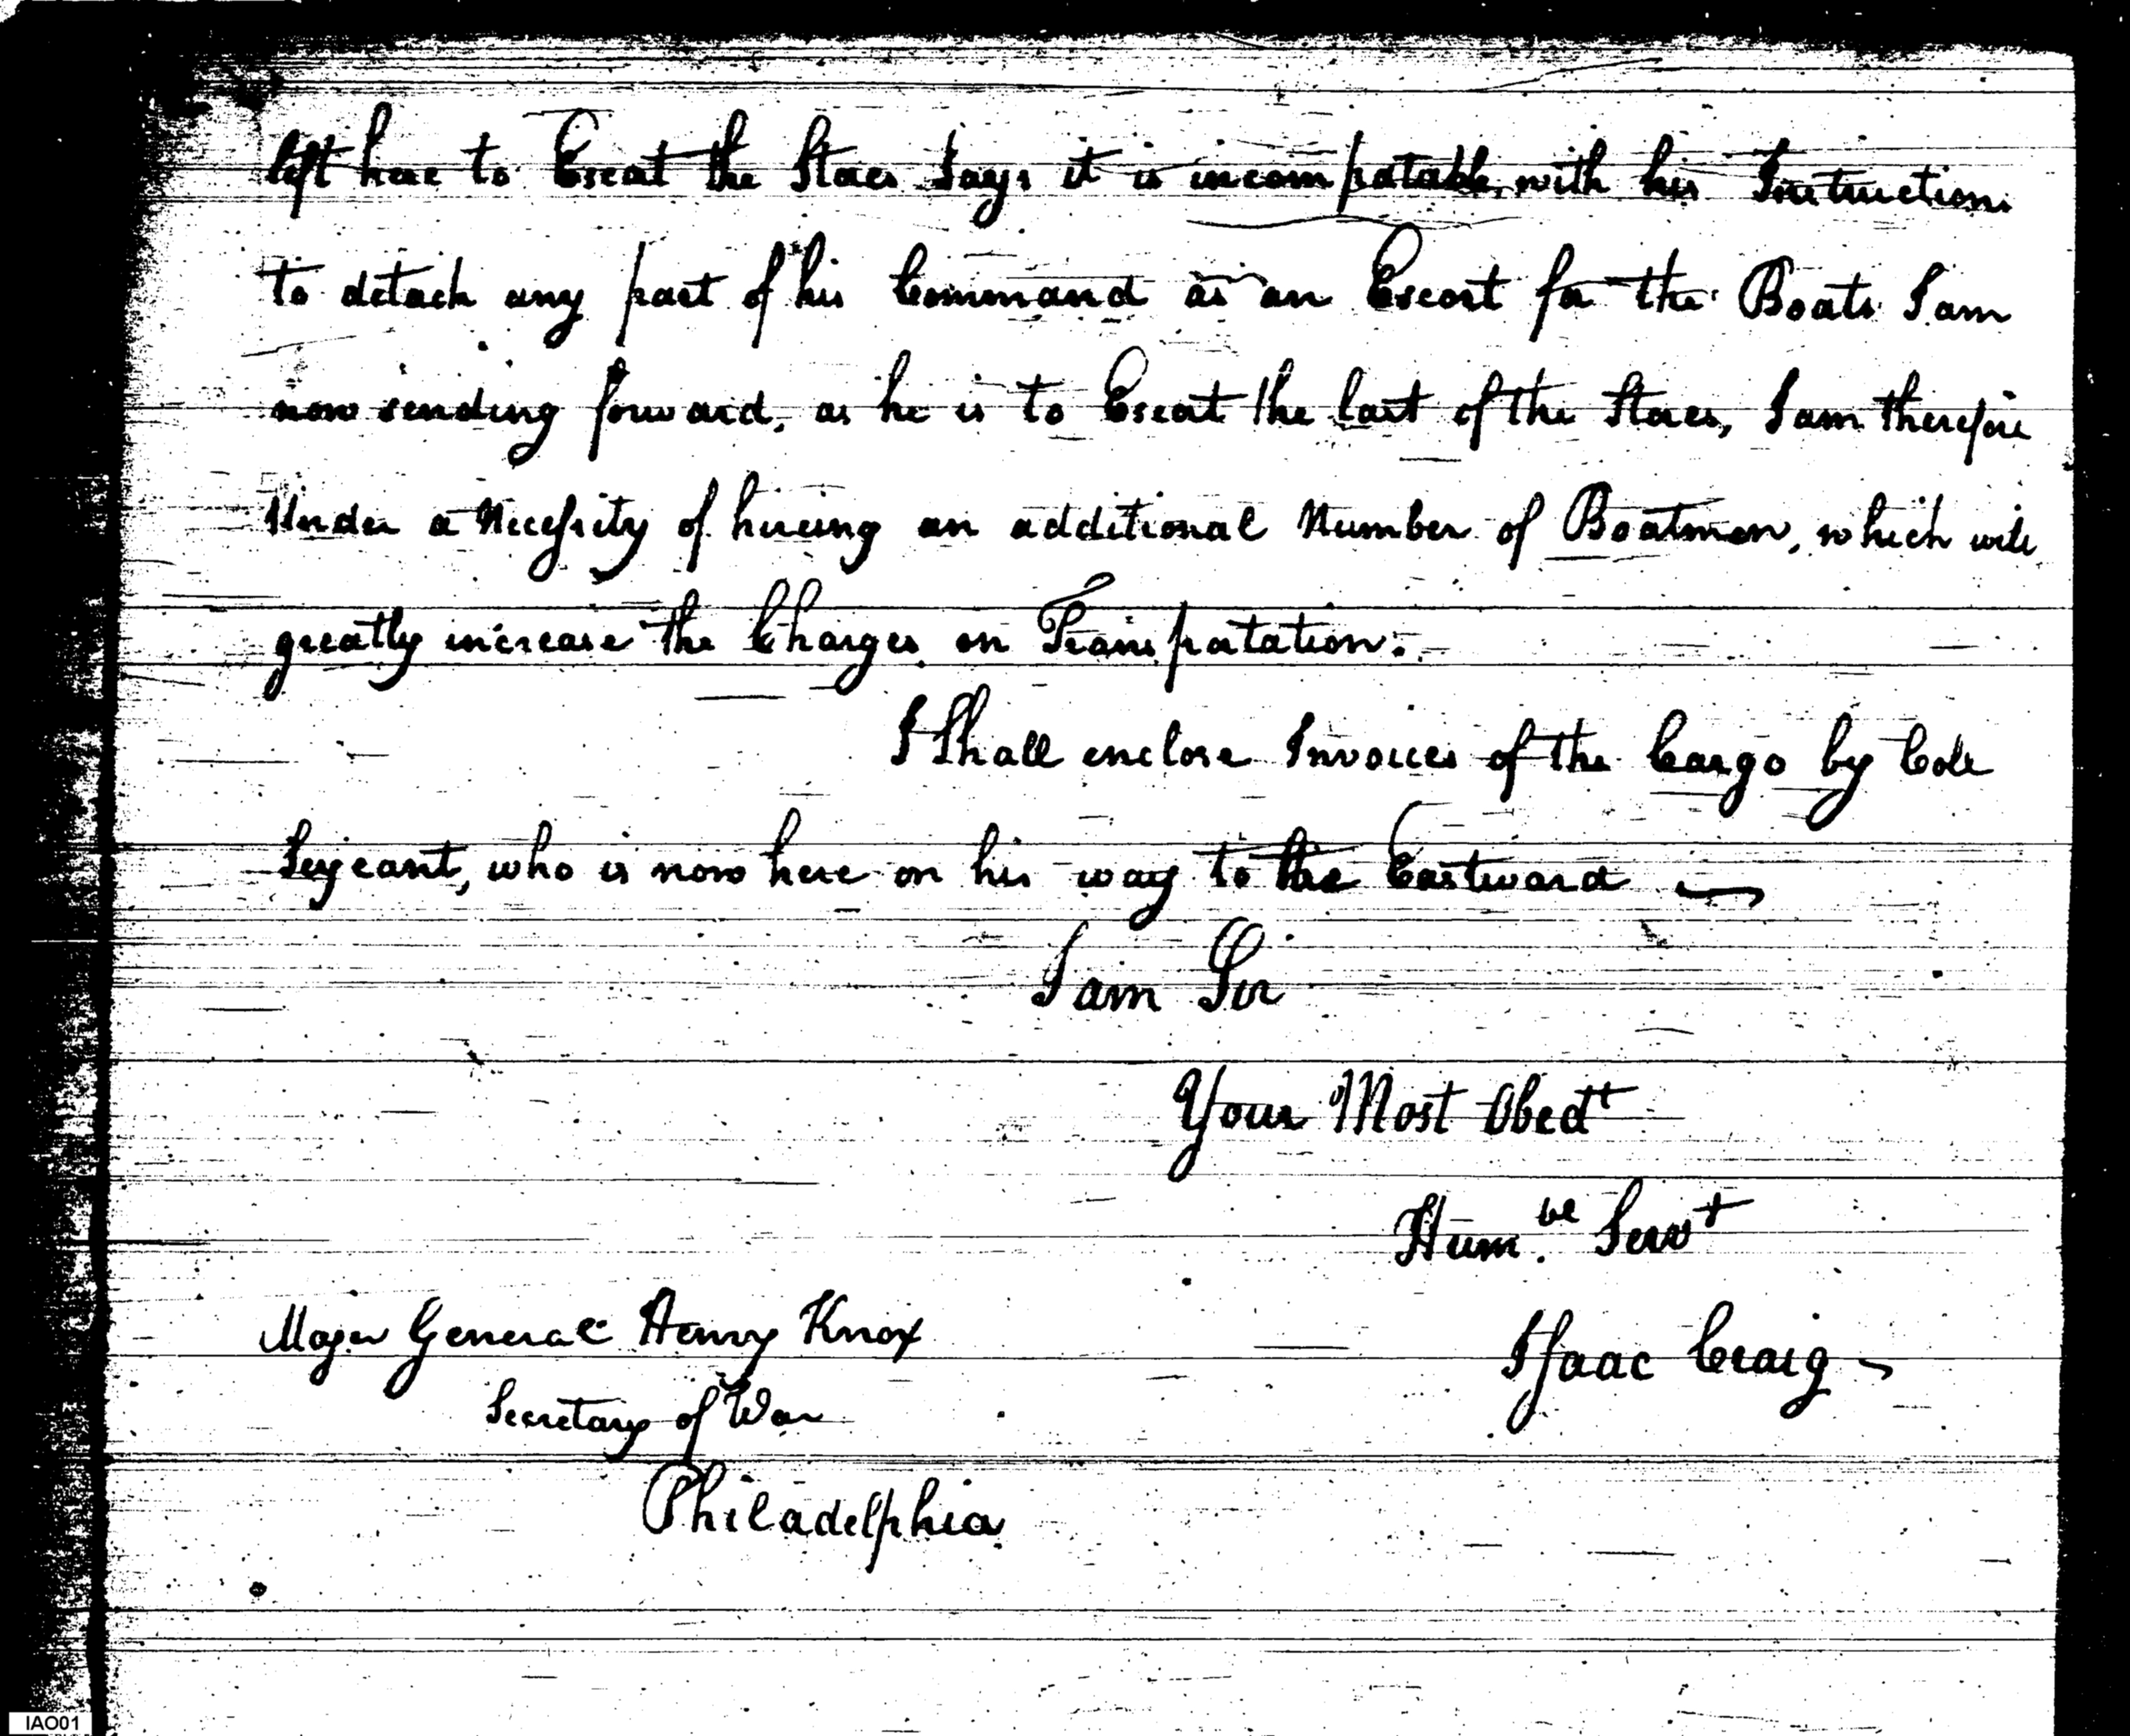 left here to Escort the Stores Says it is incompatable with his Instructions
to detach any part of his Command as an Escort for the Boats I am
now sending forward, as he is to Escort the last of the Stores, I am therefore
Under a Necessity of hireing an additional Number of Boatmen, which will
greatly increase the Charges on Transportation.
I Shall enclose Invoices of the Cargo by Colo
Serjeant, who is now here on his way to the Eastward
I am Sir
Your Most Obedt
Humbe Servt
Major General Henry Knox
Isaac Craig
Secretary of War
Philadelphia
IAO01